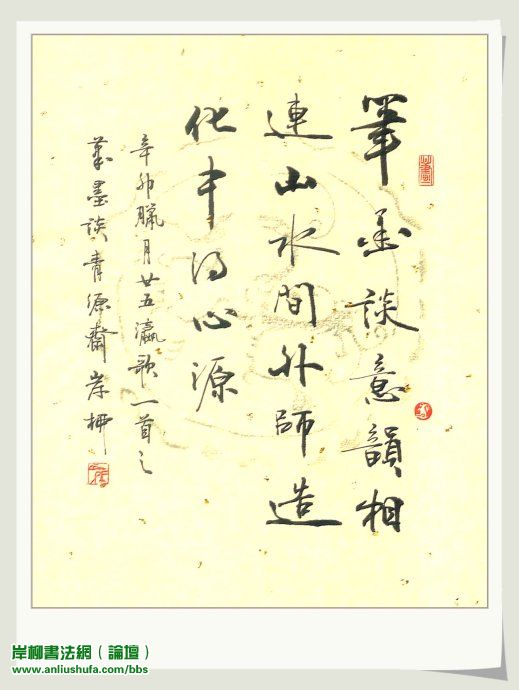 筆墨談意韻相
連山水間外師造
化中得心源
辛卯臘月廿五瀛歌一首之
筆墨談青源齋岸柳
岸柳書法網（論壇）
www.anliushufa.com/bbs